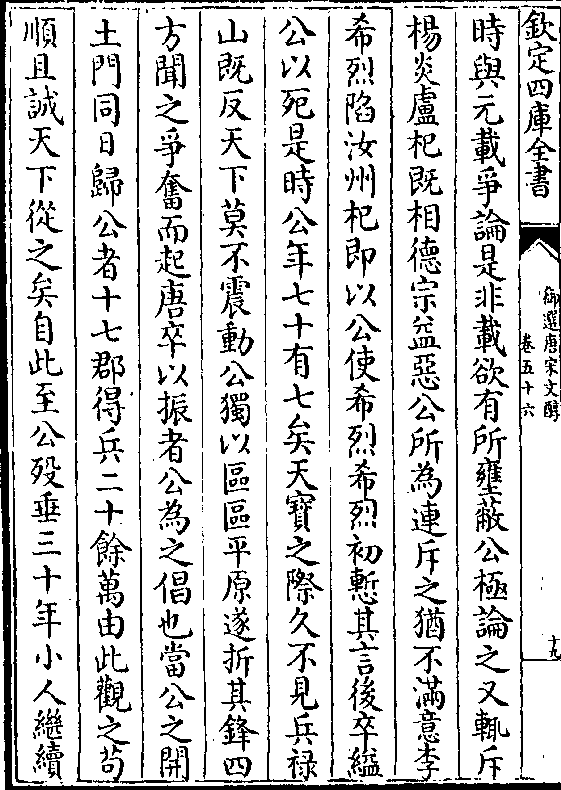 欽定四庫全書
御選唐宋文醇
卷五十六
十九
時與元載爭論是非載欲有所壅蔽公極論之又輒斥
楊炎盧杞既相德宗益惡公所為連斥之猶不滿意李
希烈陷汝州杞即以公使希烈希烈初慙其言後卒縊
公以死是時公年七十有七矣天寶之際久不見兵祿
山既反天下莫不震動公獨以區區平原遂折其鋒四
方聞之爭奮而起唐卒以振者公為之倡也當公之開
土門同日歸公者十七郡得兵二十餘萬由此觀之茍
順且誠天下從之矣自此至公歿垂三十年小人繼續